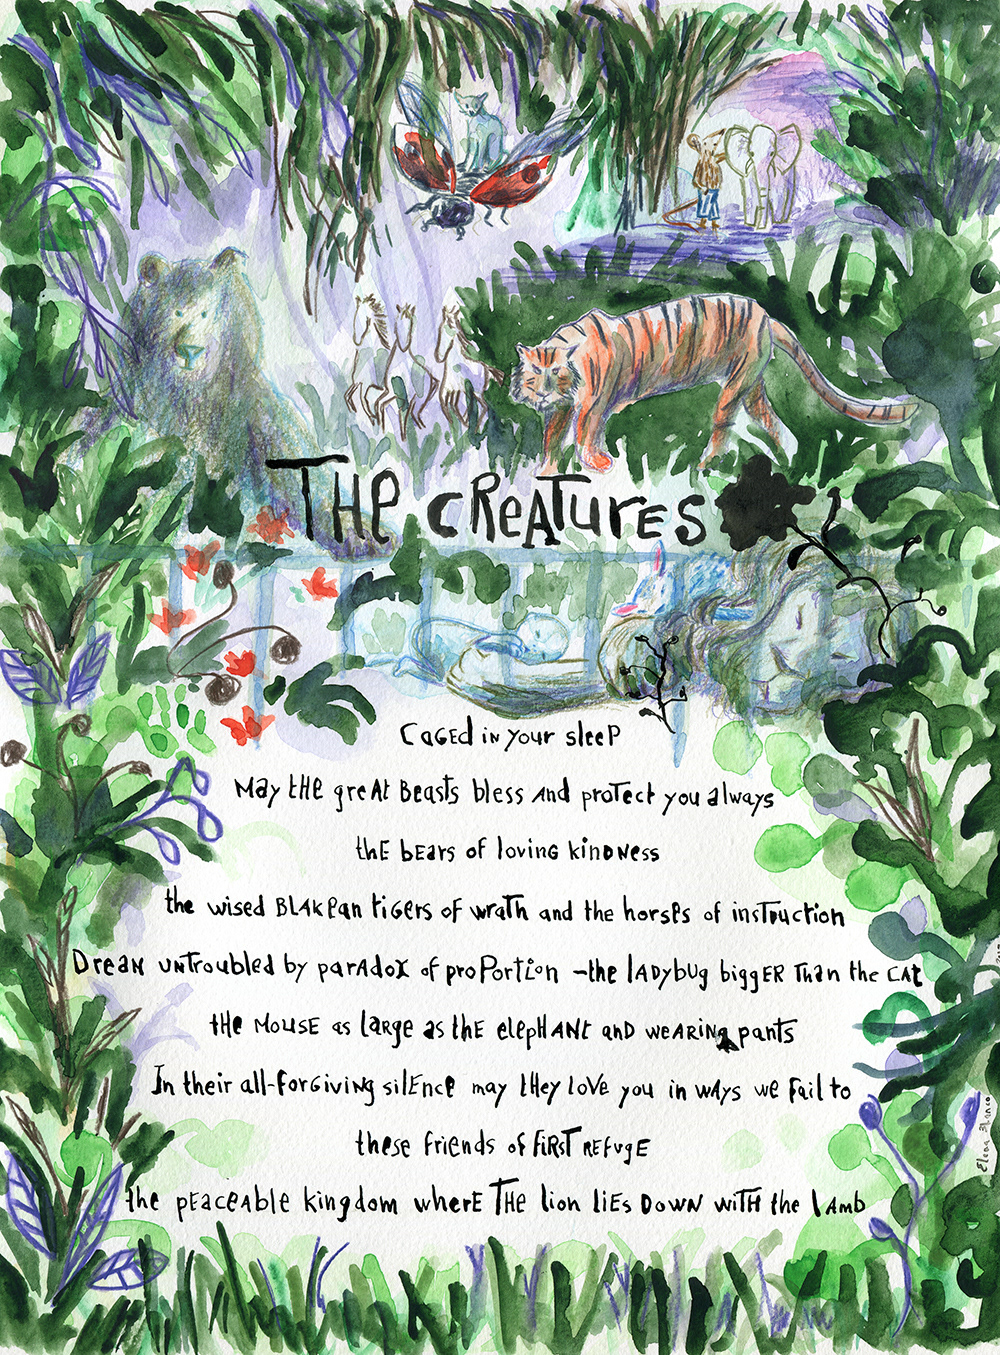 THE CREATURES
CAGED in your sleep
May the great Beasts bless and protect you always
the bears of loving kindness
the wised BLAKean tigers of wrath and the horses of instruction
Dream untroubled by paradox of proportion – the ladybug bigger than the cat
the mouse as large as the elephant and wearing pants
In their all-forgiving silence may they love you in ways we fail to
these friends of first refuge
the peaceable kingdom where THE lion lies down with the lamb